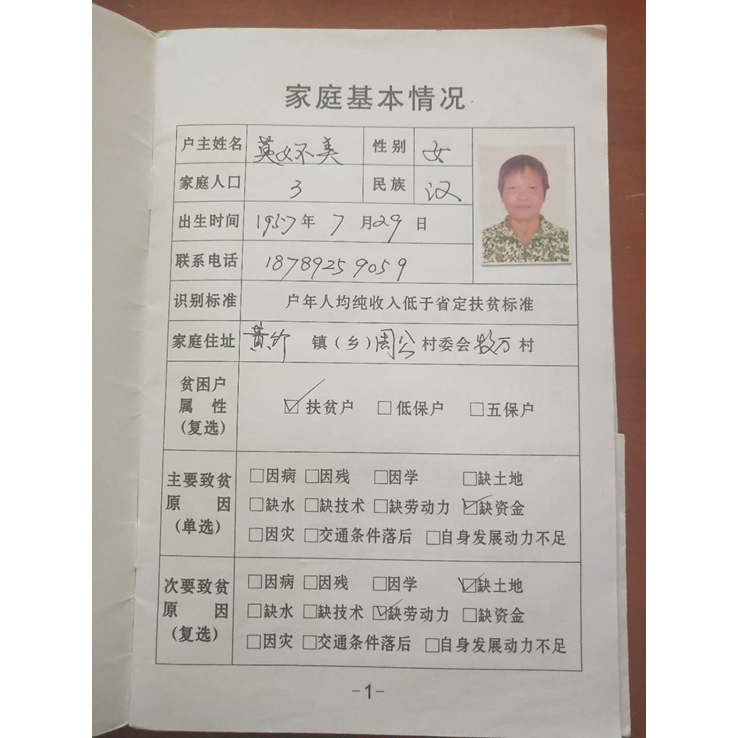 家庭基本情况
户主姓名 莫女不美 性别 女
家庭人口 3 民族 汉
出生时间 1957年 7 月29 日
联系电话 18789259059
识别标准 户年人均纯收入低于省定扶贫标准
家庭住址 黄竹 镇(乡)周公村委会 村
贫困户
属 性
(复选)
☑扶贫户 □低保户 □五保户
主要致贫
原 因
(单选)
□因病 □因残 □因学 □缺土地
□缺水 □缺技术 □缺劳动力 ☑缺资金
□因灾 □交通条件落后 □自身发展动力不足
次要致贫
原 因
(复选)
□因病 □因残 □因学 ☑缺土地
□缺水 □缺技术 ☑缺劳动力 □缺资金
□因灾 □交通条件落后 □自身发展动力不足
-1-